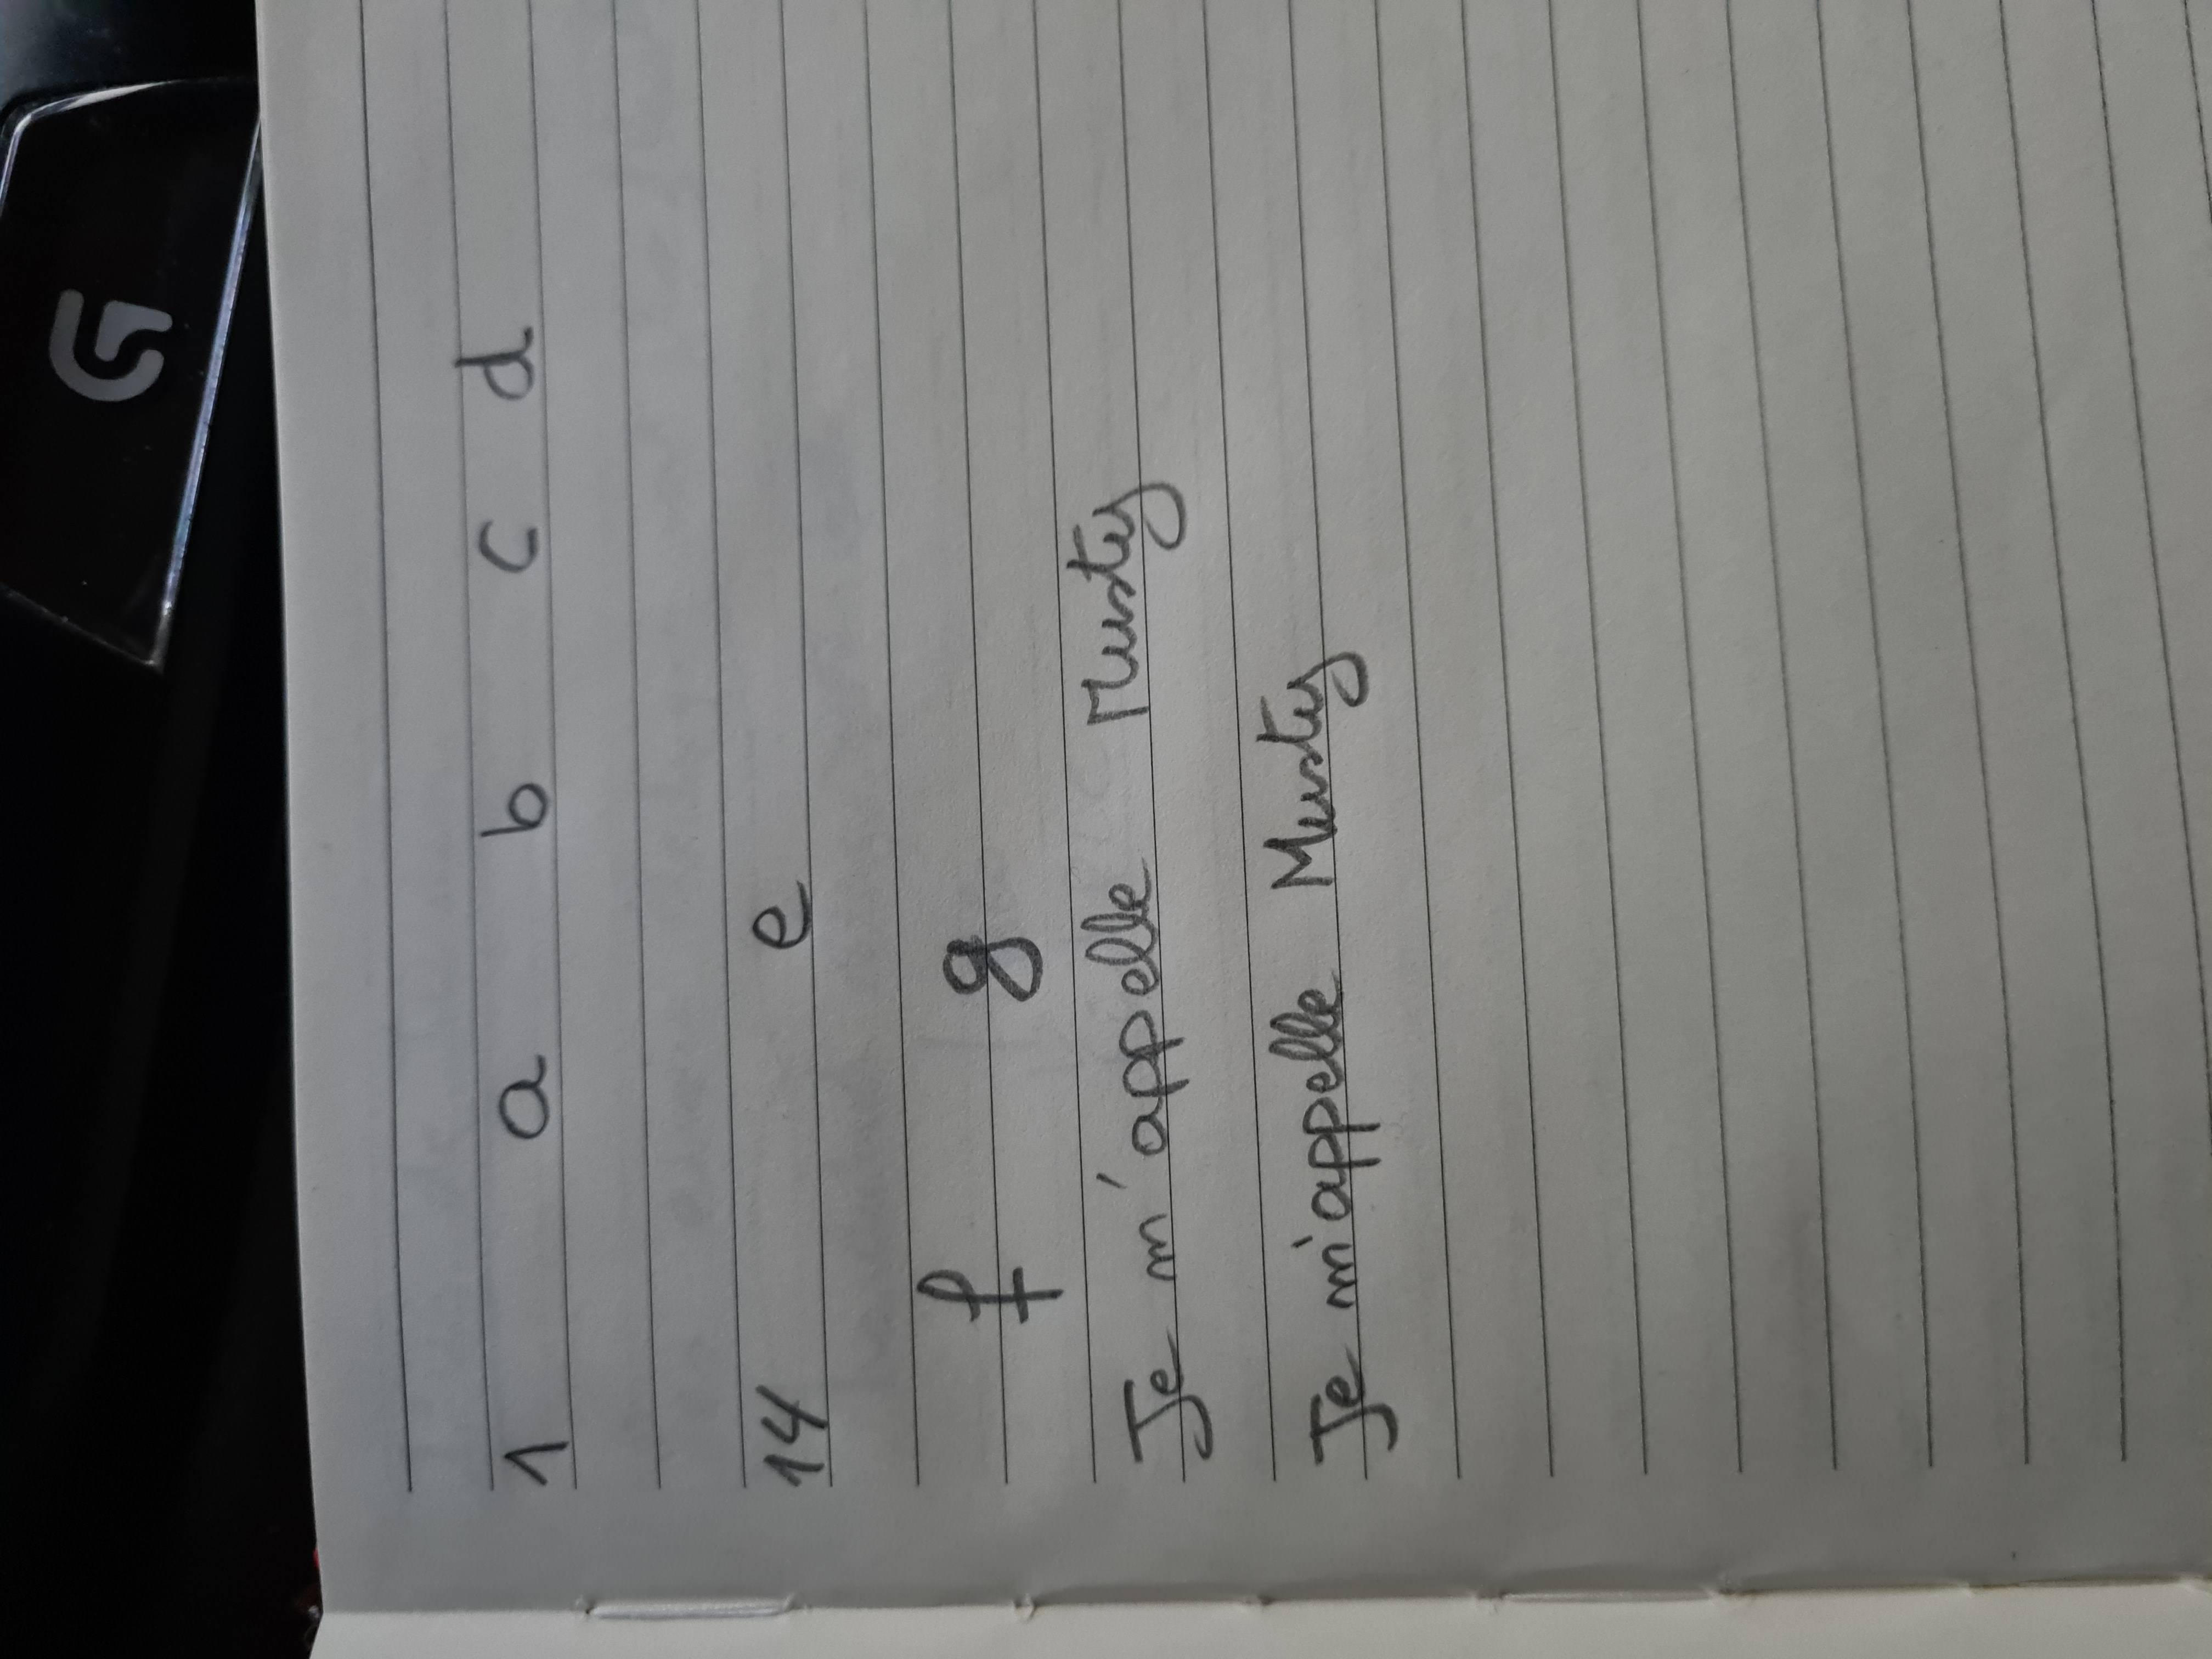 G
1 a b c d
14 e
f g
Je m'appelle Musty
Je m'appelle Musty